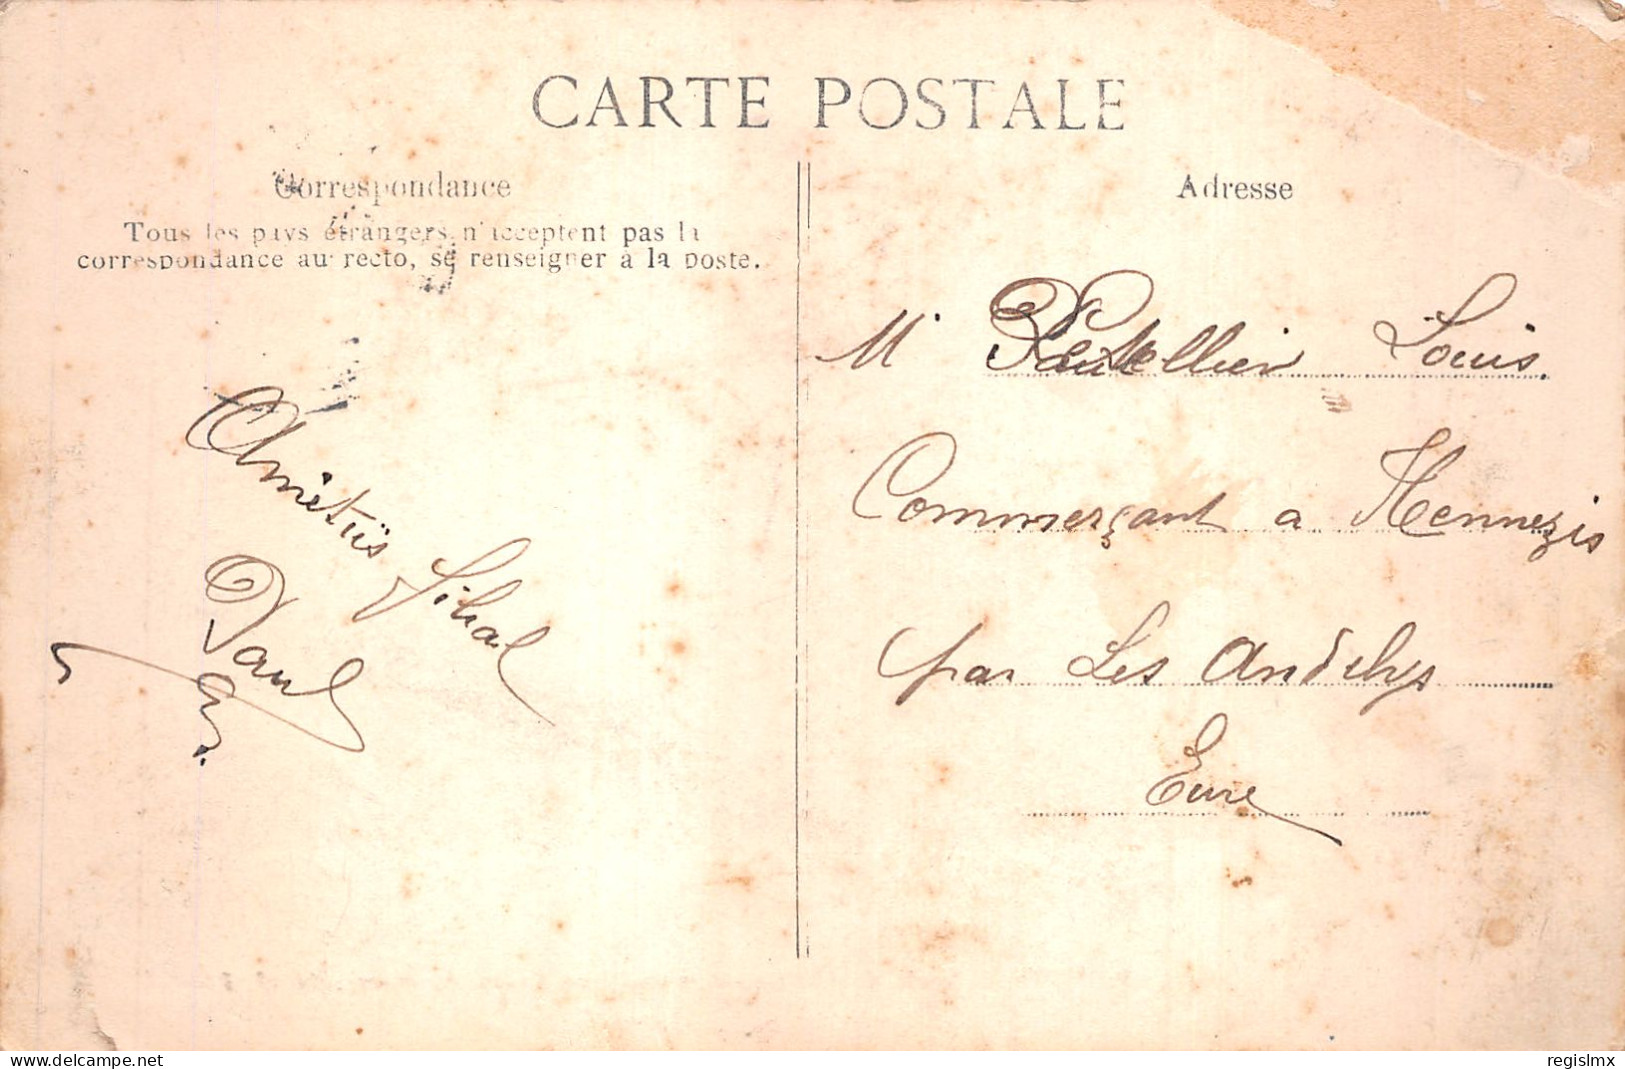 CARTE POSTALE
Correspondance
Tous les pays étrangers n'acceptent pas la
correspondance au recto, se renseigner à la poste.
Amétiïs
Paul
Adresse
M Louis.
Commerçant a Hennezis
par Les Andelys
Eure
delcampe.net
regislmx